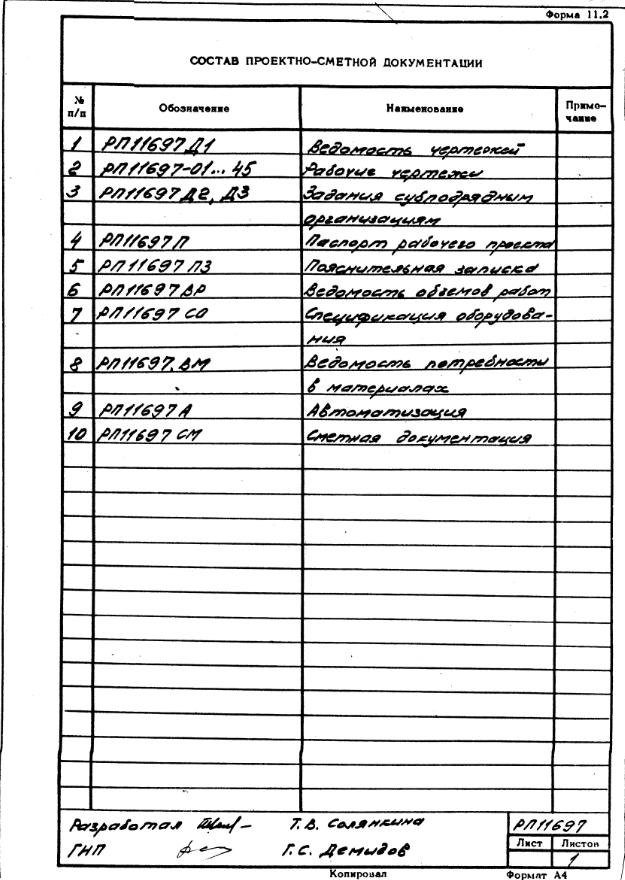 Форма 11.2
СОСТАВ ПРОЕКТНО-СМЕТНОЙ ДОКУМЕНТАЦИИ
№ п/п Обозначение Наименование Приме-чание
1 РП11697 Д1 Ведомость чертежей
2 РП11697-01...45 Рабочие чертежи
3 РП11697 Д2, Д3 Задания субподрядным
организациям
4 РП11697 П Паспорт рабочего проекта
5 РП11697 ПЗ Пояснительная записка
6 РП11697 ВР Ведомость объемов работ
7 РП11697 СО Спецификация оборудова-
ния
8 РП11697. ВМ Ведомость потребности
в материалах
9 РП11697 А Автоматизация
10 РП11697 СМ Сметная документация
Разработал Т.В. Солянкина РП11697
ГИП Г.С. Демидов Лист Листов
1
Копировал Формат А4